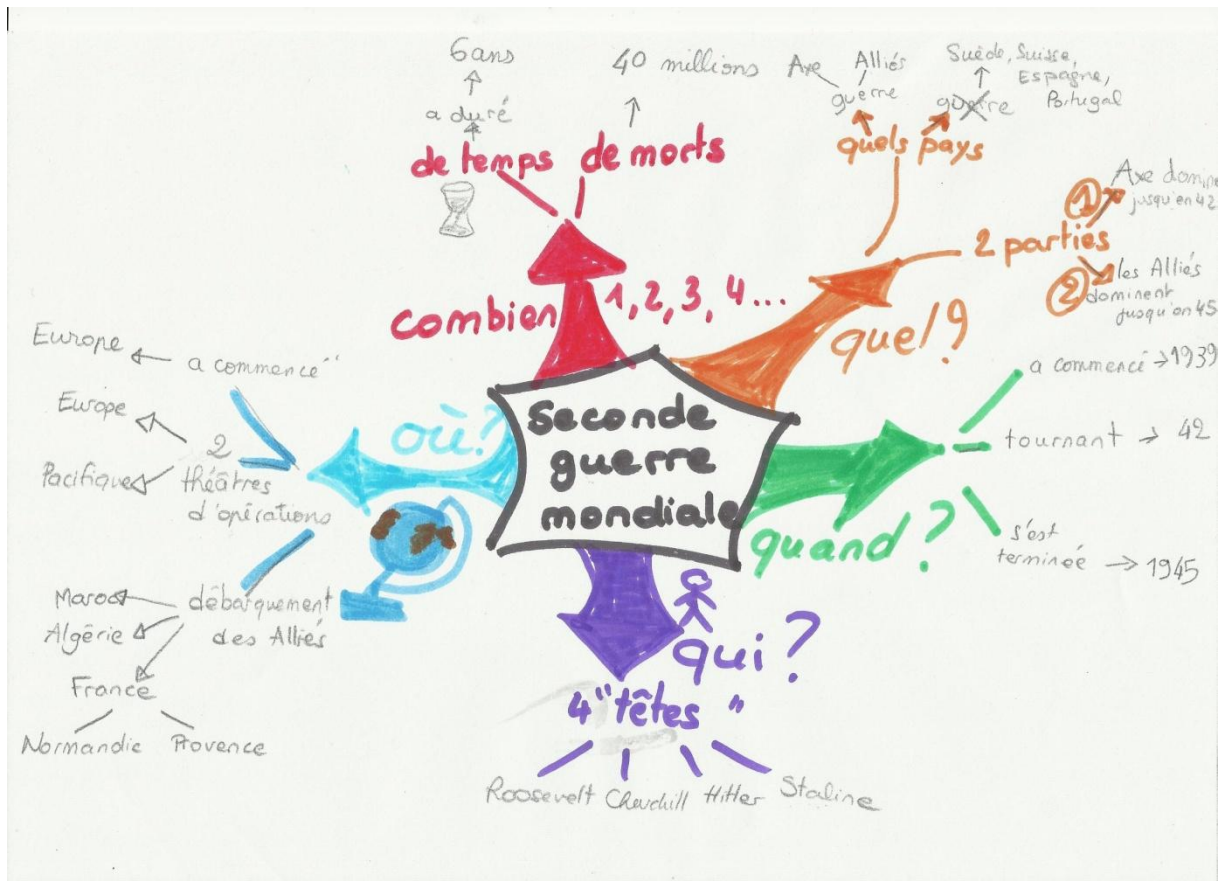 Seconde
guerre
mondiale
combien 1, 2, 3, 4...
de temps
a duré
6 ans
de morts
40 millions
quel ?
quels pays
guerre
Axe
Alliés
guerre
Suède, Suisse,
Espagne,
Portugal
2 parties
1
Axe domine
jusqu'en 42
2
les Alliés
dominent
jusqu'en 45
quand ?
a commencé → 1939
tournant → 42
s'est
terminée → 1945
qui ?
4 "têtes"
Roosevelt
Churchill
Hitler
Staline
où ?
a commencé
Europe
2
théâtres
d'opérations
Europe
Pacifique
débarquement
des Alliés
Maroc
Algérie
France
Normandie
Provence